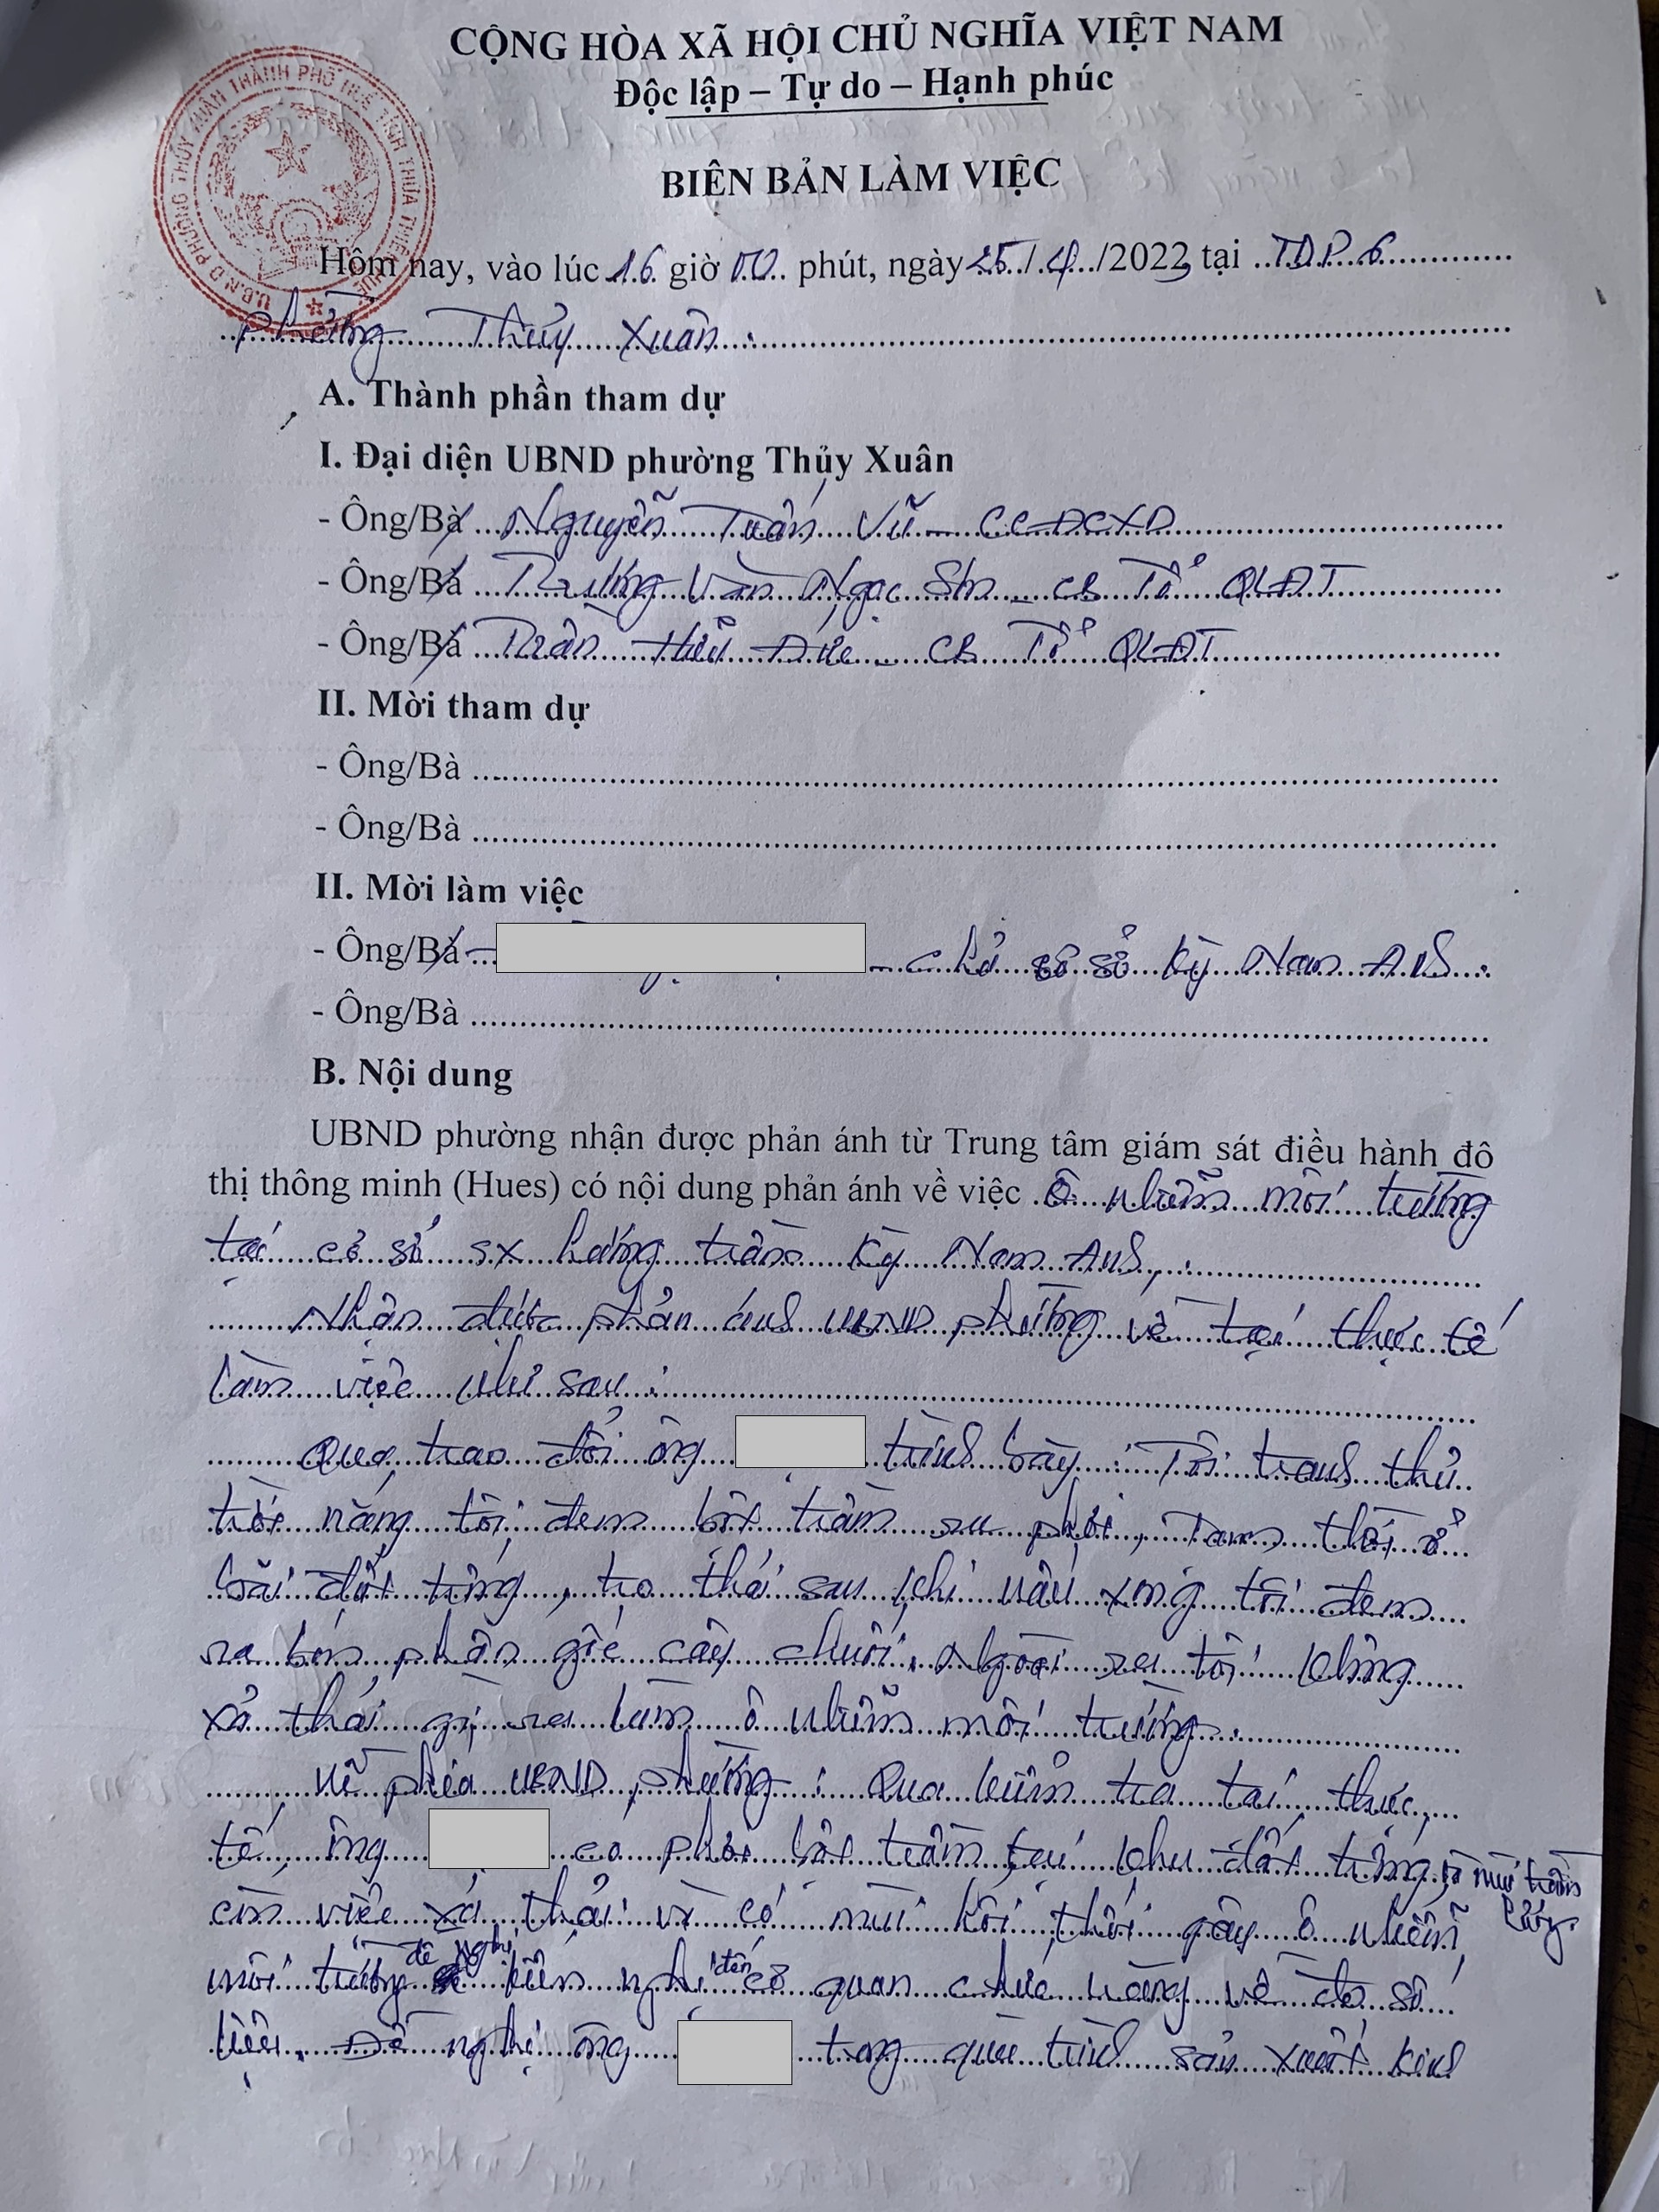 CỘNG HÒA XÃ HỘI CHỦ NGHĨA VIỆT NAM
Độc lập – Tự do – Hạnh phúc
U.B.N.D PHƯỜNG THỦY XUÂN THÀNH PHỐ HUẾ TỈNH THỪA THIÊN HUẾ
BIÊN BẢN LÀM VIỆC
Hôm nay, vào lúc 16 giờ 00 phút, ngày 25/4/2022, tại TDP 6
phường Thủy Xuân.
A. Thành phần tham dự
I. Đại diện UBND phường Thủy Xuân
- Ông/Bà Nguyễn Tuấn Vũ – CC ĐCXD
- Ông/Bà Trương Văn Ngọc Sơn – CB Tổ QLĐT
- Ông/Bà Trần Hữu Đức – CB Tổ QLĐT
II. Mời tham dự
- Ông/Bà
- Ông/Bà
II. Mời làm việc
- Ông/Bà – chủ cơ sở Kỳ Nam Anh.
- Ông/Bà
B. Nội dung
UBND phường nhận được phản ánh từ Trung tâm giám sát điều hành đô
thị thông minh (Hues) có nội dung phản ánh về việc Ô nhiễm môi trường
tại cơ sở sx hương trầm Kỳ Nam Anh,.
Nhận được phản ánh UBND phường về tại thực tế
làm việc như sau:
Qua trao đổi ông trình bày: Tôi tranh thủ
trời nắng tôi đem bột trầm ra phơi, Tạm thời ở
bãi đất trống, tro thải sau khi nấu xong tôi đem
ra bón phân gốc cây chuối, Ngoài ra tôi không
xả thải gì ra làm ô nhiễm môi trường.
Về phía UBND phường: Qua kiểm tra tại thực
tế, ông có phơi bột trầm tại khu đất trống, mùi trầm
còn việc xả thải và có mùi hôi thối gây ô nhiễm
môi trường đề nghị kiến nghị đến cơ quan chức năng về đo số
liệu. Đề nghị ông trong quá trình sản xuất kinh